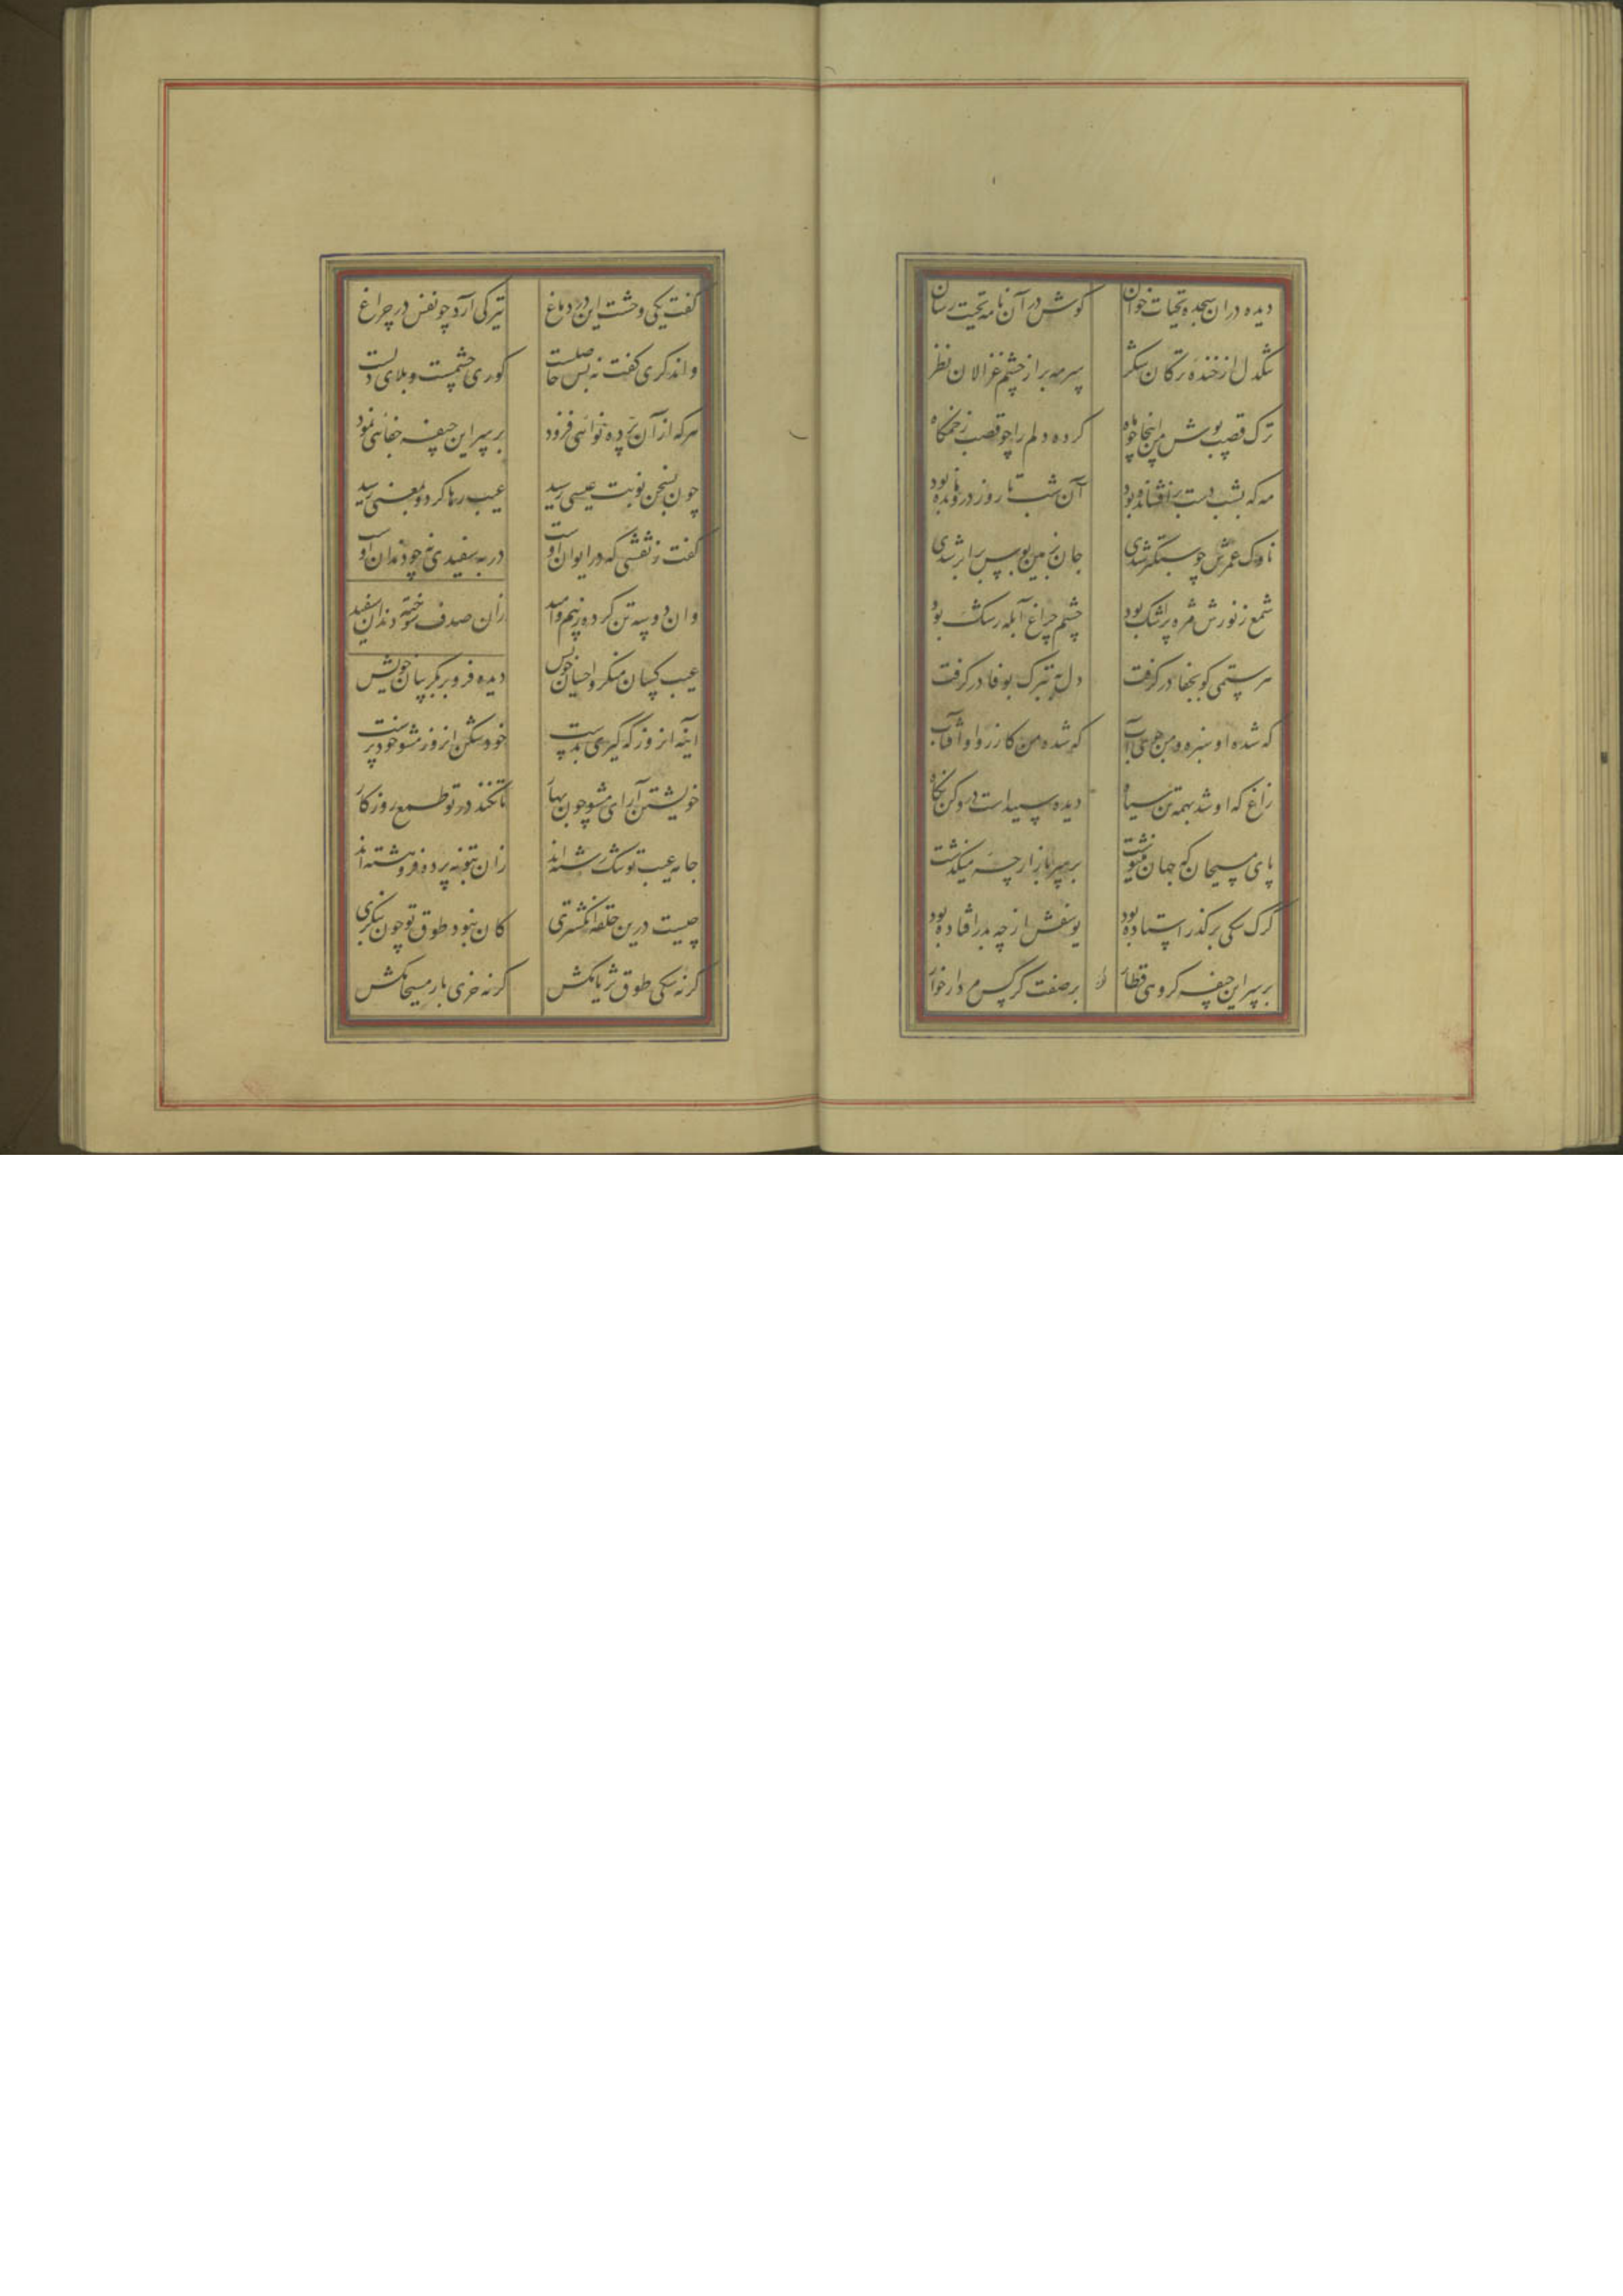 دیده در ان سجده تحیات خوان گوش در آن نامه تحیت رسان
تنگدل از خنده ترکان شکر سرمه بر از چشم غزالان نظر
ترک قصب پوش من اینجا چو ماه کرده دلم را چو قصب زخمگاه
مه که بشب دست برافشانده بود آن شب تا روز درو مانده بود
ناوک غمزش چو سبکتر شدی جان زمین بوس برابر شدی
شمع ز نورش مژه پر اشک بود چشم چراغ آبله رشک بود
هر ستمی کو بجفا در گرفت دل به تبرک بوفا در گرفت
گه شده او سبزه و من جوی آب گه شده من گازر و او آفتاب
زاغ که او شد بهمه تن سیاه دیده سپید است درو کن نگاه
پای مسیحا که جهان مینوشت بر سر بازارچه میگذشت
گرگ سگی بر گذر استاده بود یوسفش از چه بدر افتاده بود
بر سر این جیفه گروهی قطار بر صفت گرگس مردار خوار
گفت یکی وحشت این در دماغ تیرگی آرد چو نفس در چراغ
واندگری گفت نه بس حاصلست کوری چشمست و بلای دلست
هر که از آن پرده نوائی فزود بر سر این جیفه جفائی نمود
چون بسخن نوبت عیسی رسید عیب رها کرد و بمعنی رسید
گفت ز نقشی که در ایوان اوست در به سفیدی نه چو دندان اوست
وان دو سه تن کرده ز بیم و امید زان صدف سوخته دندان سفید
عیب کسان منگر و احسان خویش دیده فرو بر بگریبان خویش
آینه انروز که گیری بدست خود شکن انروز مشو خود پرست
خویشتن آرای مشو چون بهار تا نکند در تو طمع روزگار
جامه عیب تو تنک رشته اند زان بتو نه پرده فرو هشته اند
چیست درین حلقه انگشتری کان نبود طوق تو چون بنگری
گر نه سگی طوق ثریا مکش گر نه خری بار مسیحا مکش